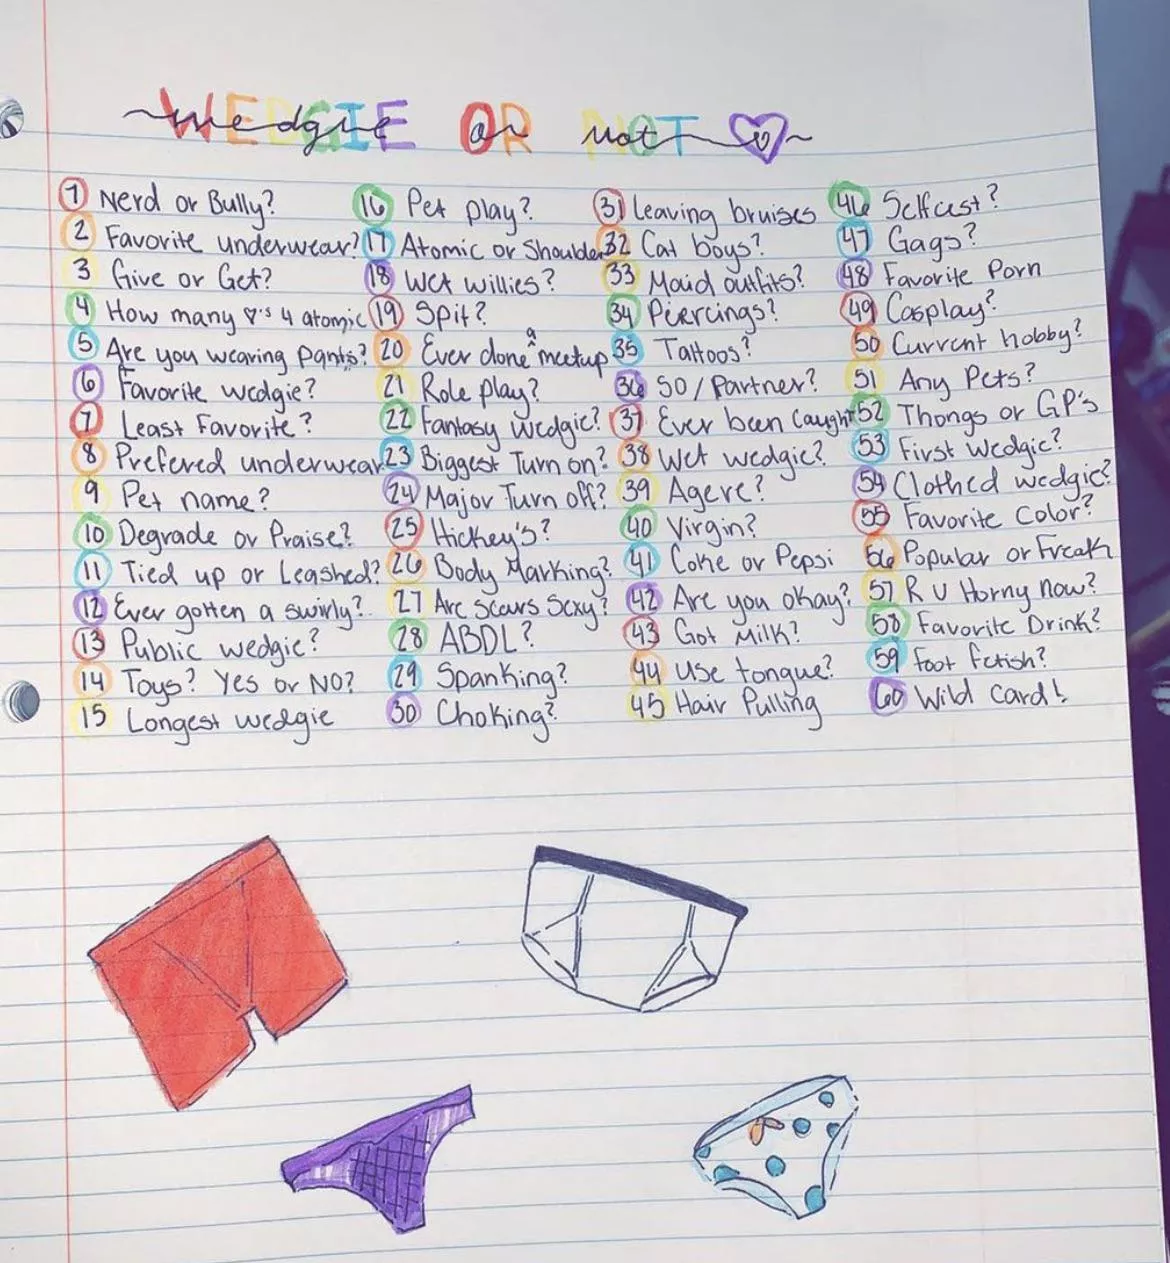 Wedgie or not
1 Nerd or Bully?
2 Favorite underwear?
3 Give or Get?
4 How many ♡'s 4 atomic
5 Are you wearing pants?
6 Favorite wedgie?
7 Least Favorite?
8 Prefered underwear
9 Pet name?
10 Degrade or Praise?
11 Tied up or Leashed?
12 Ever gotten a swirly?
13 Public wedgie?
14 Toys? Yes or No?
15 Longest wedgie
16 Pet play?
17 Atomic or Shoulder
18 Wet willies?
19 Spit?
20 Ever done a meetup
21 Role play?
22 Fantasy wedgie?
23 Biggest Turn on?
24 Major Turn off?
25 Hickey's?
26 Body Marking?
27 Are scars sexy?
28 ABDL?
29 Spanking?
30 Choking?
31 Leaving bruises
32 Cat boys?
33 Maid outfits?
34 Piercings?
35 Tattoos?
36 SO/Partner?
37 Ever been caught
38 Wet wedgie?
39 Agere?
40 Virgin?
41 Coke or Pepsi
42 Are you okay?
43 Got Milk?
44 Use tongue?
45 Hair Pulling
46 Selfcest?
47 Gags?
48 Favorite Porn
49 Cosplay?
50 Current hobby?
51 Any Pets?
52 Thongs or GP's
53 First wedgie?
54 Clothed wedgie?
55 Favorite Color?
56 Popular or Freak
57 R U Horny now?
58 Favorite Drink?
59 Foot fetish?
60 Wild card!